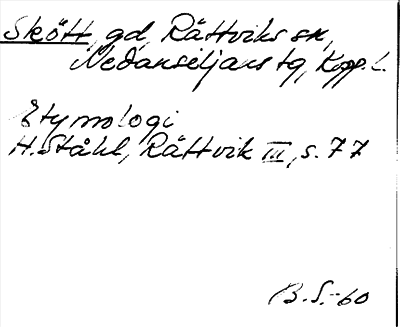 Skött, gd, Rättviks sn,
Nedansiljans tg, Kopp. l.
Etymologi
H. Ståhl, Rättvik III, s. 77
B. S. -60